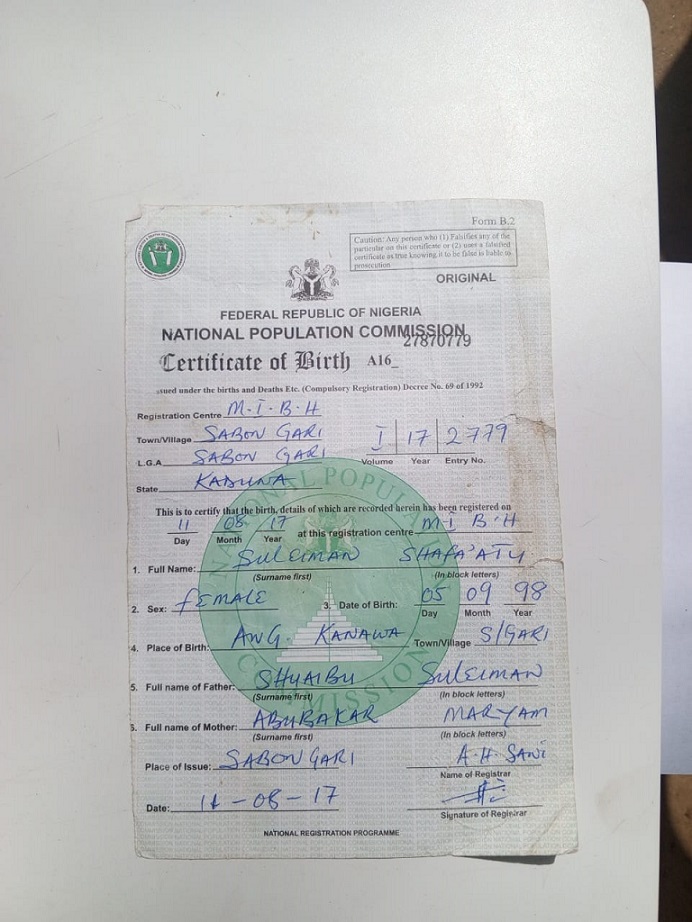 Form B.2
Caution: Any person who (1) Falsifies any of the
particular on this certificate or (2) uses a falsified
certificate as true knowing it to be false is liable to
prosecution
ORIGINAL
FEDERAL REPUBLIC OF NIGERIA
NATIONAL POPULATION COMMISSION
27870779
Certificate of Birth A16_
ssued under the births and Deaths Etc. (Compulsory Registration) Decree No. 69 of 1992
Registration Centre M.I.B.H
Town/Village SABON GARI I 17 2779
L.G.A SABON GARI Volume Year Entry No.
State KADUNA
This is to certify that the birth, details of which are recorded herein has been registered on
11 08 17 at this registration centre M.I B.H
Day Month Year
1. Full Name: SULEIMAN SHAFA'ATU
(Surname first) (In block letters)
2. Sex: FEMALE 3. Date of Birth: 05 09 98
Day Month Year
4. Place of Birth: ANG. KANAWA Town/Village S/GARI
5. Full name of Father: SHUAIBU SULEIMAN
(Surname first) (In block letters)
6. Full name of Mother: ABUBAKAR MARYAM
(Surname first) (In block letters)
Place of Issue: SABON GARI A.H. SANI
Name of Registrar
Date: 11-08-17
Signature of Registrar
NATIONAL REGISTRATION PROGRAMME
NATIONAL POPULATION COMMISSION